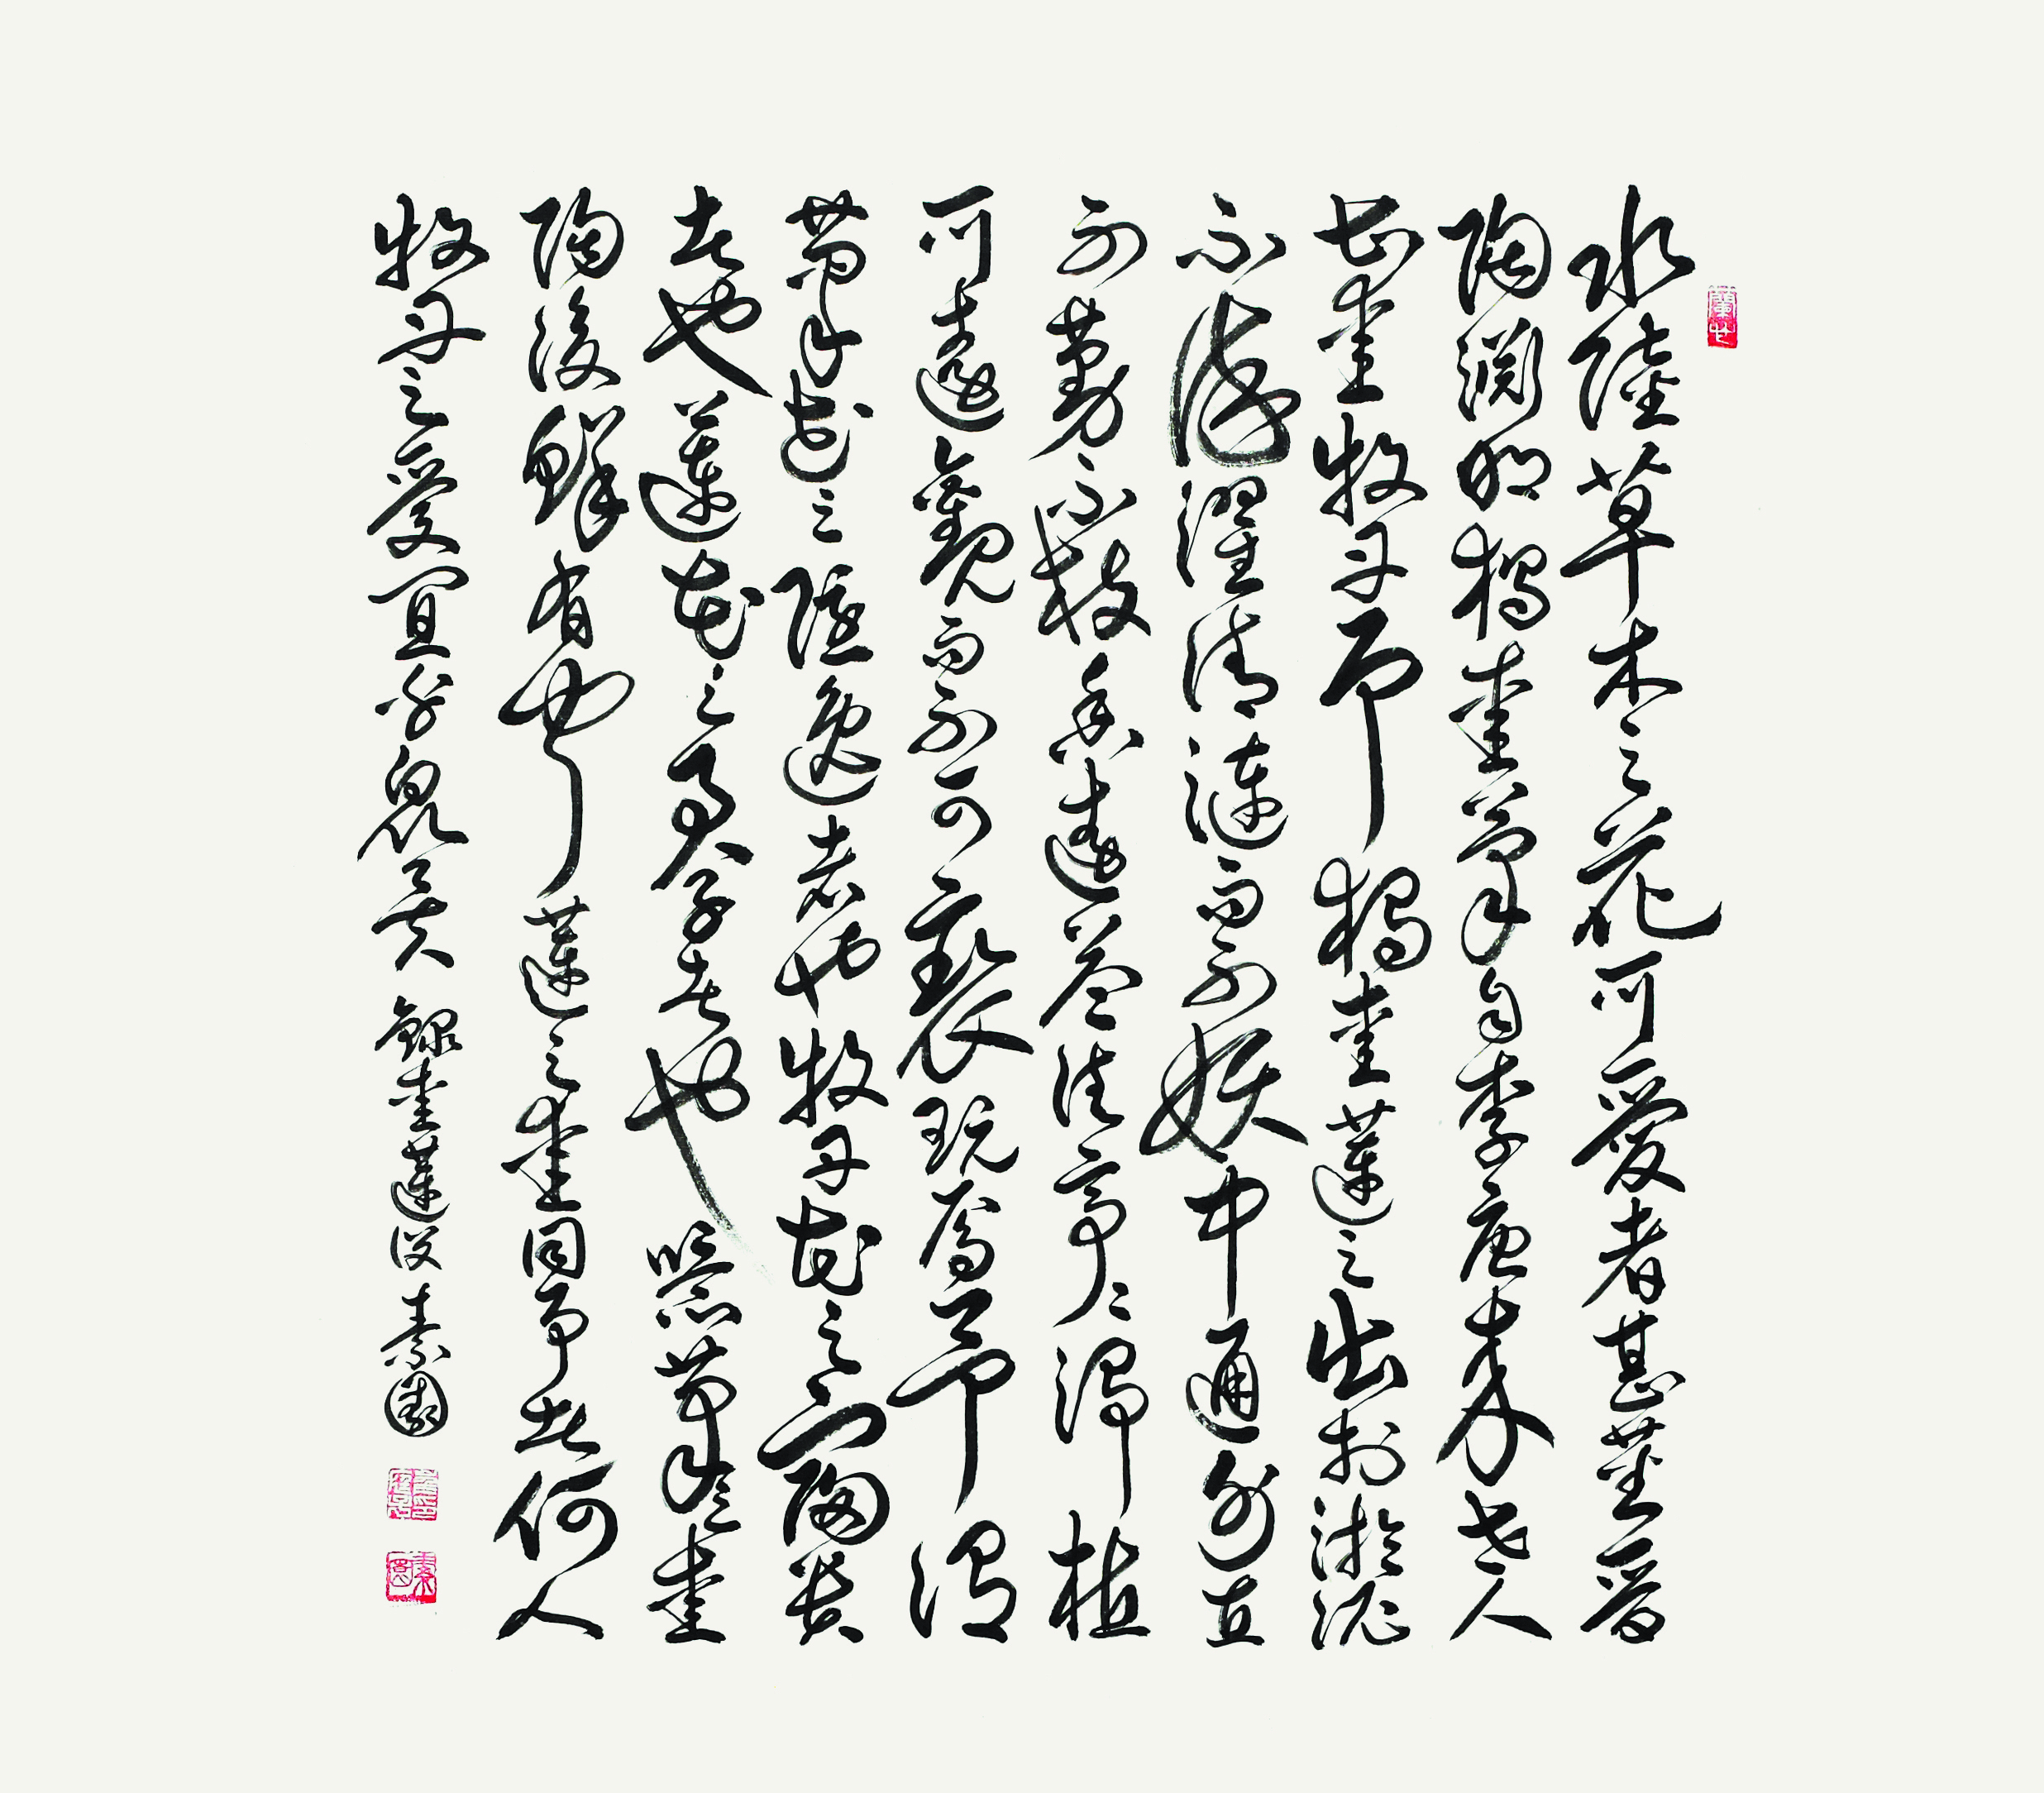 水陸草木之花可愛者甚蕃晉
陶淵明獨愛菊自李唐來世人
甚愛牡丹予獨愛蓮之出於淤泥
不染濯清漣而不妖中通外直
不蔓不枝香遠益清亭〻淨植
可遠觀而不可褻玩焉予謂
菊花之隱逸者也牡丹花之富貴
者也蓮花之君子者也噫菊之愛
陶後鮮有聞蓮之愛同予者何人
牡丹之愛宜乎眾矣 錄愛蓮說 素園